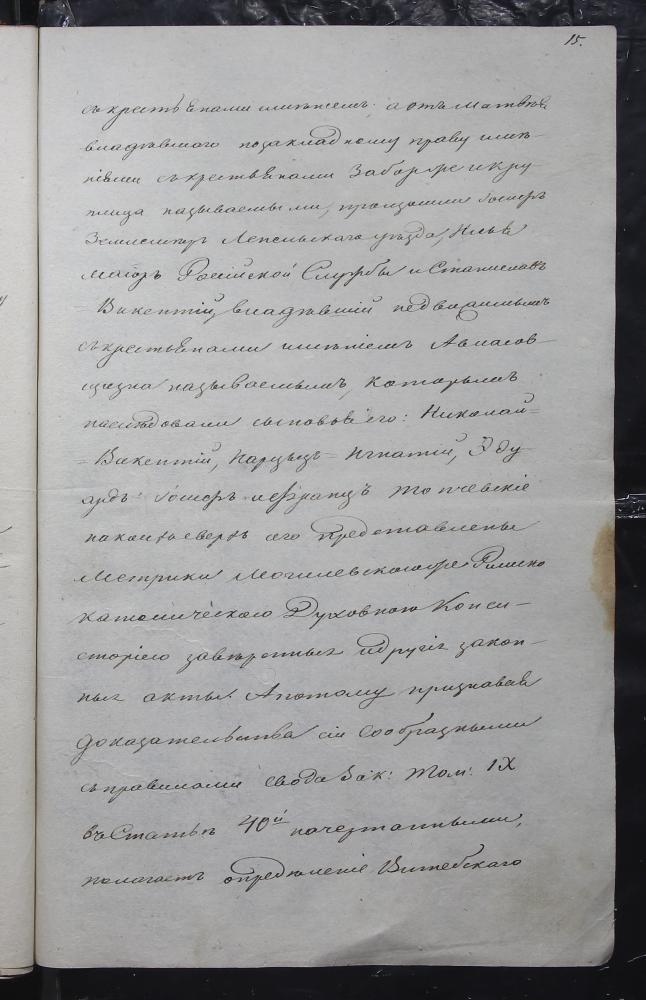 15.
съ крестьянами имѣніемъ, а отъ Матвѣя
владѣвшаго позакладному праву имѣ-
ніями съ крестьянами Заборже и Кру-
пица называемыми, произошли Іосифъ
Землемѣръ Лепельскаго уѣзда, Илья
маіоръ Россійской Службы и Станиславъ
=Викентій, владѣвшій недвижимымъ
съ крестьянами имѣніемъ
называемымъ, которымъ
наслѣдовали сыновья его: Николай=
=Викентій, Нарцызъ=Игнатій, Эду
ардъ Іосифъ и Францъ Топчевскіе
на каковъ сверхъ сего представлены
Метрики Могилевскою Римско
католическою Духовною Конси-
сторіею завѣренныя и другіе закон-
ные акты. А потому признавая
доказательства сіи сообразными
съ правилами Свода Зак: Том: IX
въ Статьѣ 40й начертанными,
полагаетъ опредѣленіе Витебскаго